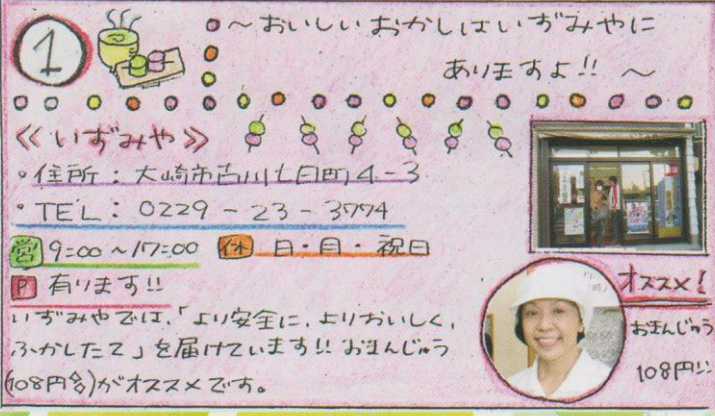 1
～おいしいおかしはいずみやに
ありますよ!! ～
≪いずみや≫
・住所：大崎市古川七日町4-3
・TEL：0229-23-3774
営 9:00～17:00 休 日・月・祝日
P 有ります!!
いずみやでは、「より安全に、よりおいしく、
ふかしたて」を届けています!! おまんじゅう
(108円)がオススメです。
オススメ!
おまんじゅう
108円!!